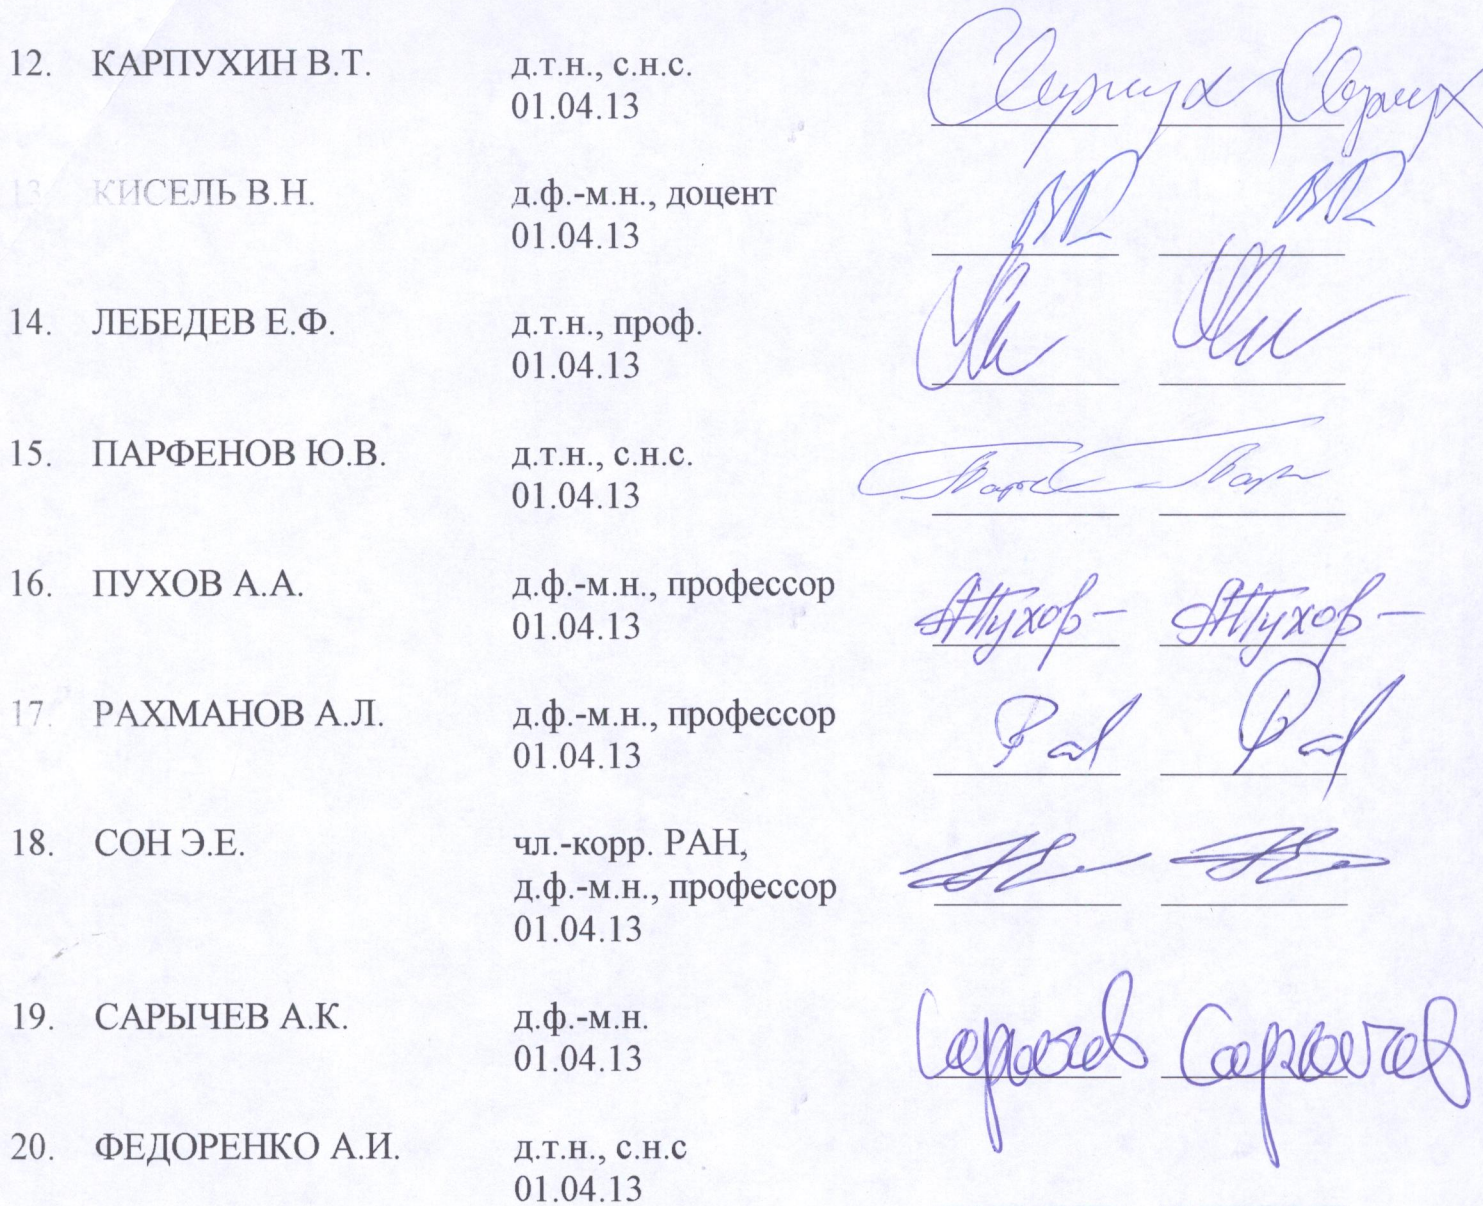 12. КАРПУХИН В.Т. д.т.н., с.н.с.
01.04.13
13. КИСЕЛЬ В.Н. д.ф.-м.н., доцент
01.04.13
14. ЛЕБЕДЕВ Е.Ф. д.т.н., проф.
01.04.13
15. ПАРФЕНОВ Ю.В. д.т.н., с.н.с.
01.04.13
16. ПУХОВ А.А. д.ф.-м.н., профессор
01.04.13 АПухов- АПухов-
17. РАХМАНОВ А.Л. д.ф.-м.н., профессор
01.04.13
18. СОН Э.Е. чл.-корр. РАН,
д.ф.-м.н., профессор
01.04.13
19. САРЫЧЕВ А.К. д.ф.-м.н.
01.04.13 Сарычев Сарычев
20. ФЕДОРЕНКО А.И. д.т.н., с.н.с
01.04.13